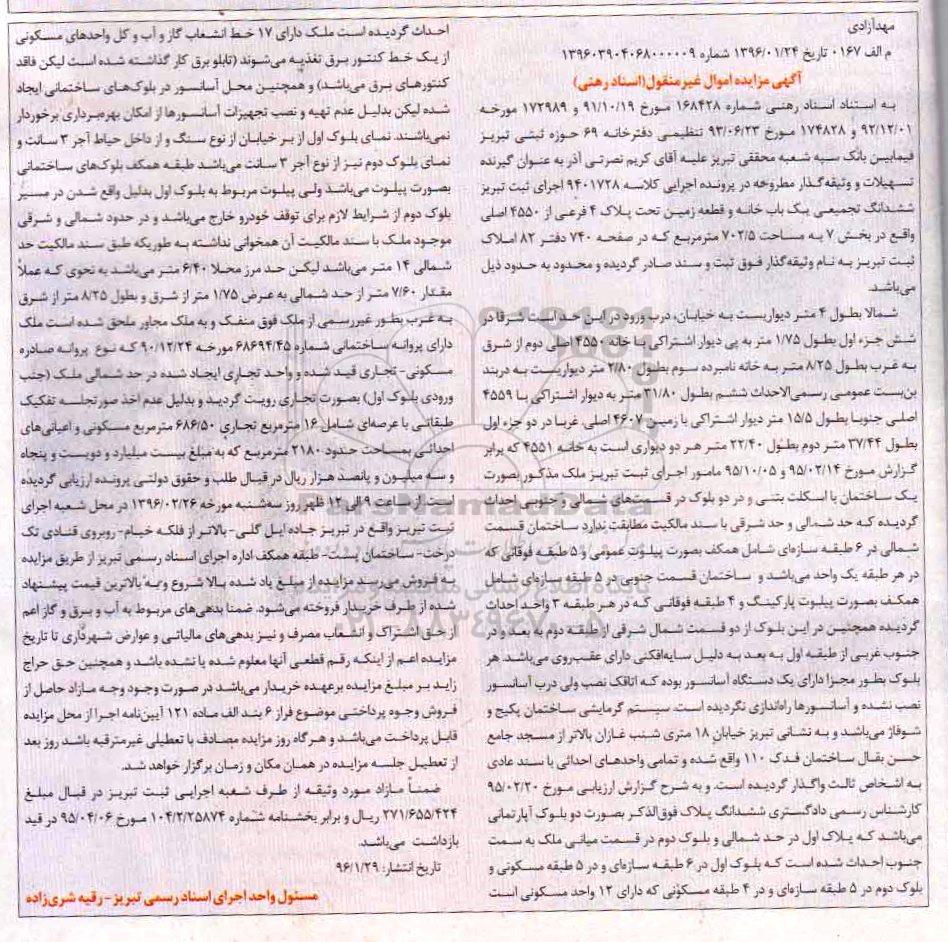 مهدآزادی
م الف ۰۱۶۷ تاریخ ۱۳۹۶/۰۱/۲۴ شماره ۱۳۹۶۰۳۹۰۴۰۶۸۰۰۰۰۰۹
آگهی مزایده اموال غیر منقول(اسناد رهنی)
به استناد اسناد رهنی شماره ۱۶۸۴۲۸ مورخ ۹۱/۱۰/۱۹ و ۱۷۲۹۸۹ مورخه
۹۲/۱۲/۰۱ و ۱۷۴۸۲۸ مورخ ۹۳/۰۶/۲۳ تنظیمی دفترخانه ۶۹ حوزه ثبتی تبریز
فیمابین بانک سپه شعبه محققی تبریز علیه آقای کریم نصرتی آذر به عنوان گیرنده
تسهیلات و وثیقه‌گذار مطروحه در پرونده اجرایی کلاسه ۹۴۰۱۷۲۸ اجرای ثبت تبریز
ششدانگ تجمیعی یک باب خانه و قطعه زمین تحت پلاک ۴ فرعی از ۴۵۵۰ اصلی
واقع در بخش ۷ به مساحت ۷۰۲/۵ مترمربع که در صفحه ۷۴۰ دفتر ۸۲ املاک
ثبت تبریز به نام وثیقه‌گذار فوق ثبت و سند صادر گردیده و محدود به حدود ذیل
می‌باشد.
شمالا بطول ۴ متر دیواریست به خیابان، درب ورود در این حد است شرقا در
شش جزء اول بطول ۱/۷۵ متر به پی دیوار اشتراکی با خانه ۴۵۵۰ اصلی دوم از شرق
به غرب بطول ۸/۲۵ متر به خانه نامبرده سوم بطول ۲/۸۰ متر دیواریست به دربند
بن‌بست عمومی رسمی‌الاحداث ششم بطول ۳۱/۸۰ متر به دیوار اشتراکی با ۴۵۵۹
اصلی جنوبا بطول ۱۵/۵ متر دیوار اشتراکی با زمین ۴۶۰۷ اصلی، غربا در دو جزء اول
بطول ۳۷/۴۴ متر دوم بطول ۲۲/۴۰ متر هر دو دیواری است به خانه ۴۵۵۱ که برابر
گزارش مورخ ۹۵/۰۲/۱۴ و ۹۵/۱۰/۰۵ مامور اجرای ثبت تبریز ملک مذکور بصورت
یک ساختمان با اسکلت بتنی و در دو بلوک در قسمت‌های شمالی و جنوبی احداث
گردیده که حد شمالی و حد شرقی با سند مالکیت مطابقت ندارد ساختمان قسمت
شمالی در ۶ طبقه سازه‌ای شامل همکف بصورت پیلوت عمومی و ۵ طبقه فوقانی که
در هر طبقه یک واحد می‌باشد و ساختمان قسمت جنوبی در ۵ طبقه سازه‌ای شامل
همکف بصورت پیلوت پارکینگ و ۴ طبقه فوقانی که در هر طبقه ۳ واحد احداث
گردیده همچنین در این بلوک از دو قسمت شمال شرقی از طبقه دوم به بعد و در
جنوب غربی از طبقه اول به بعد به دلیل سایه‌افکنی دارای عقب‌روی می‌باشد. هر
بلوک بطور مجزا دارای یک دستگاه آسانسور بوده که اتاقک نصب ولی درب آسانسور
نصب نشده و آسانسورها راه‌اندازی نگردیده است. سیستم گرمایشی ساختمان پکیج و
شوفاژ می‌باشد و به نشانی تبریز خیابان ۱۸ متری شنب غازان بالاتر از مسجد جامع
حسن بقال ساختمان فدک ۱۱۰ واقع شده و تمامی واحدهای احداثی با سند عادی
به اشخاص ثالث واگذار گردیده است. و به شرح گزارش ارزیابی مورخ ۹۵/۰۲/۲۰
کارشناس رسمی دادگستری ششدانگ پلاک فوق‌الذکر بصورت دو بلوک آپارتمانی
می‌باشد که پلاک اول در حد شمالی و بلوک دوم در قسمت میانی ملک به سمت
جنوب احداث شده است که بلوک اول در ۶ طبقه سازه‌ای و در ۵ طبقه مسکونی و
بلوک دوم در ۵ طبقه سازه‌ای و در ۴ طبقه مسکونی که دارای ۱۲ واحد مسکونی است
احداث گردیده است ملک دارای ۱۷ خط انشعاب گاز و آب و کل واحدهای مسکونی
از یک خط کنتور برق تغذیه می‌شوند (تابلو برق کار گذاشته شده است لیکن فاقد
کنتورهای برق می‌باشد) و همچنین محل آسانسور در بلوک‌های ساختمانی ایجاد
شده لیکن بدلیل عدم تهیه و نصب تجهیزات آسانسورها از امکان بهره‌برداری برخوردار
نمی‌باشند. نمای بلوک اول از بر خیابان از نوع سنگ و از داخل حیاط آجر ۳ سانت و
نمای بلوک دوم نیز از نوع آجر ۳ سانت می‌باشد طبقه همکف بلوک‌های ساختمانی
بصورت پیلوت می‌باشد ولی پیلوت مربوط به بلوک اول بدلیل واقع شدن در مسیر
بلوک دوم از شرایط لازم برای توقف خودرو خارج می‌باشد و در حدود شمالی و شرقی
موجود ملک با سند مالکیت آن همخوانی نداشته به طوریکه طبق سند مالکیت حد
شمالی ۱۴ متر می‌باشد لیکن حد مرز محلا ۶/۴۰ متر می‌باشد به نحوی که عملاً
مقدار ۷/۶۰ متر از حد شمالی به عرض ۱/۷۵ متر از شرق و بطول ۸/۲۵ متر از شرق
به غرب بطور غیررسمی از ملک فوق منفک و به ملک مجاور ملحق شده است ملک
دارای پروانه ساختمانی شماره ۶۸۶۹۴/۴۵ مورخه ۹۰/۱۲/۲۴ که نوع پروانه صادره
مسکونی- تجاری قید شده و واحد تجاری ایجاد شده در حد شمالی ملک (جنب
ورودی بلوک اول) بصورت تجاری رویت گردید و بدلیل عدم اخذ صورتجلسه تفکیک
طبقاتی با عرصه‌ای شامل ۱۶ مترمربع تجاری ۶۸۶/۵۰ مترمربع مسکونی و اعیانی‌های
احداثی بمساحت حدود ۲۱۸۰ مترمربع که به مبلغ بیست میلیارد و دویست و پنجاه
و سه میلیون و پانصد هزار ریال در قبال طلب و حقوق دولتی پرونده ارزیابی گردیده
است از ساعت ۹ الی ۱۲ ظهر روز سه‌شنبه مورخه ۱۳۹۶/۰۲/۲۶ در محل شعبه اجرای
ثبت تبریز واقع در تبریز جاده ایل گلی- بالاتر از فلکه خیام- روبروی قنادی تک
درخت- ساختمان پست- طبقه همکف اداره اجرای اسناد رسمی تبریز از طریق مزایده
به فروش می‌رسد مزایده از مبلغ یاد شده بالا شروع و به بالاترین قیمت پیشنهاد
شده از طرف خریدار فروخته می‌شود. ضمنا بدهی‌های مربوط به آب و برق و گاز اعم
از حق اشتراک و انشعاب مصرف و نیز بدهی‌های مالیاتی و عوارض شهرداری تا تاریخ
مزایده اعم از اینکه رقم قطعی آنها معلوم شده یا نشده باشد و همچنین حق حراج
زاید بر مبلغ مزایده برعهده خریدار می‌باشد در صورت وجود وجه مازاد حاصل از
فروش وجوه پرداختی موضوع فراز ۶ بند الف ماده ۱۲۱ آیین‌نامه اجرا از محل مزایده
قابل پرداخت می‌باشد و هرگاه روز مزایده مصادف با تعطیلی غیرمترقبه باشد روز بعد
از تعطیل جلسه مزایده در همان مکان و زمان برگزار خواهد شد.
ضمناً مازاد مورد وثیقه از طرف شعبه اجرایی ثبت تبریز در قبال مبلغ
۲۷۱/۶۵۵/۴۲۴ ریال و برابر بخشنامه شماره ۱۰۴/۲/۲۵۸۷۴ مورخ ۹۵/۰۴/۰۶ در قید
بازداشت می‌باشد.
تاریخ انتشار: ۹۶/۱/۲۹
مسئول واحد اجرای اسناد رسمی تبریز - رقیه شری‌زاده